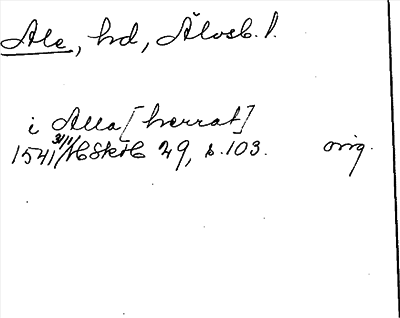 Ale, hd, Älvsb. l.
i Alla [herrat]
1541 31/1 HSkH 29, s. 103. orig.